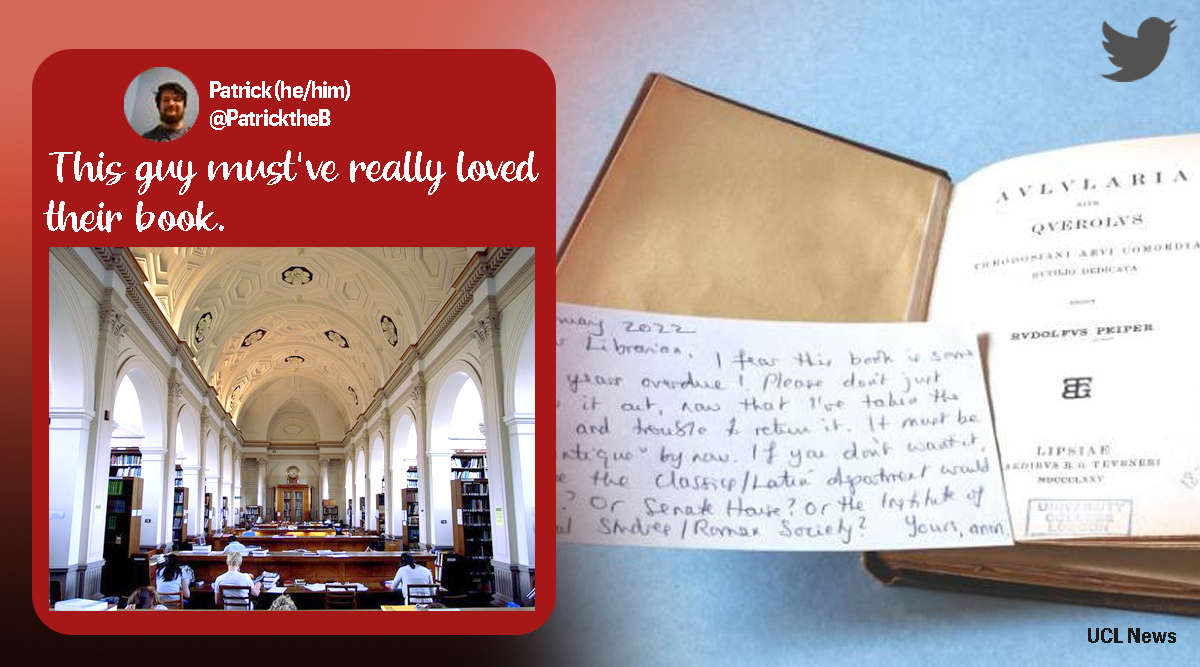 Patrick (he/him)
@PatricktheB
This guy must've really loved
their book.
may 2022
Librarian. I fear this book is some
years overdue! Please don't just
it out, now that I've taken the
and trouble to return it. It must be
by now. If you don't want it,
the Classics/Latin department would
? Or Senate House? Or the Institute of
Studies/Roman Society? Yours, anon.
AVLVLARIA
SIVE
QVEROLVS
THEODOSIANI AEVI COMOEDIA
RVTILIO DEDICATA
EDIDIT
RVDOLFVS PEIPER
LIPSIAE
AEDIBVS B. G. TEVBNERI
MDCCCLXXV
UNIVERSITY
COLLEGE
LONDON
UCL News